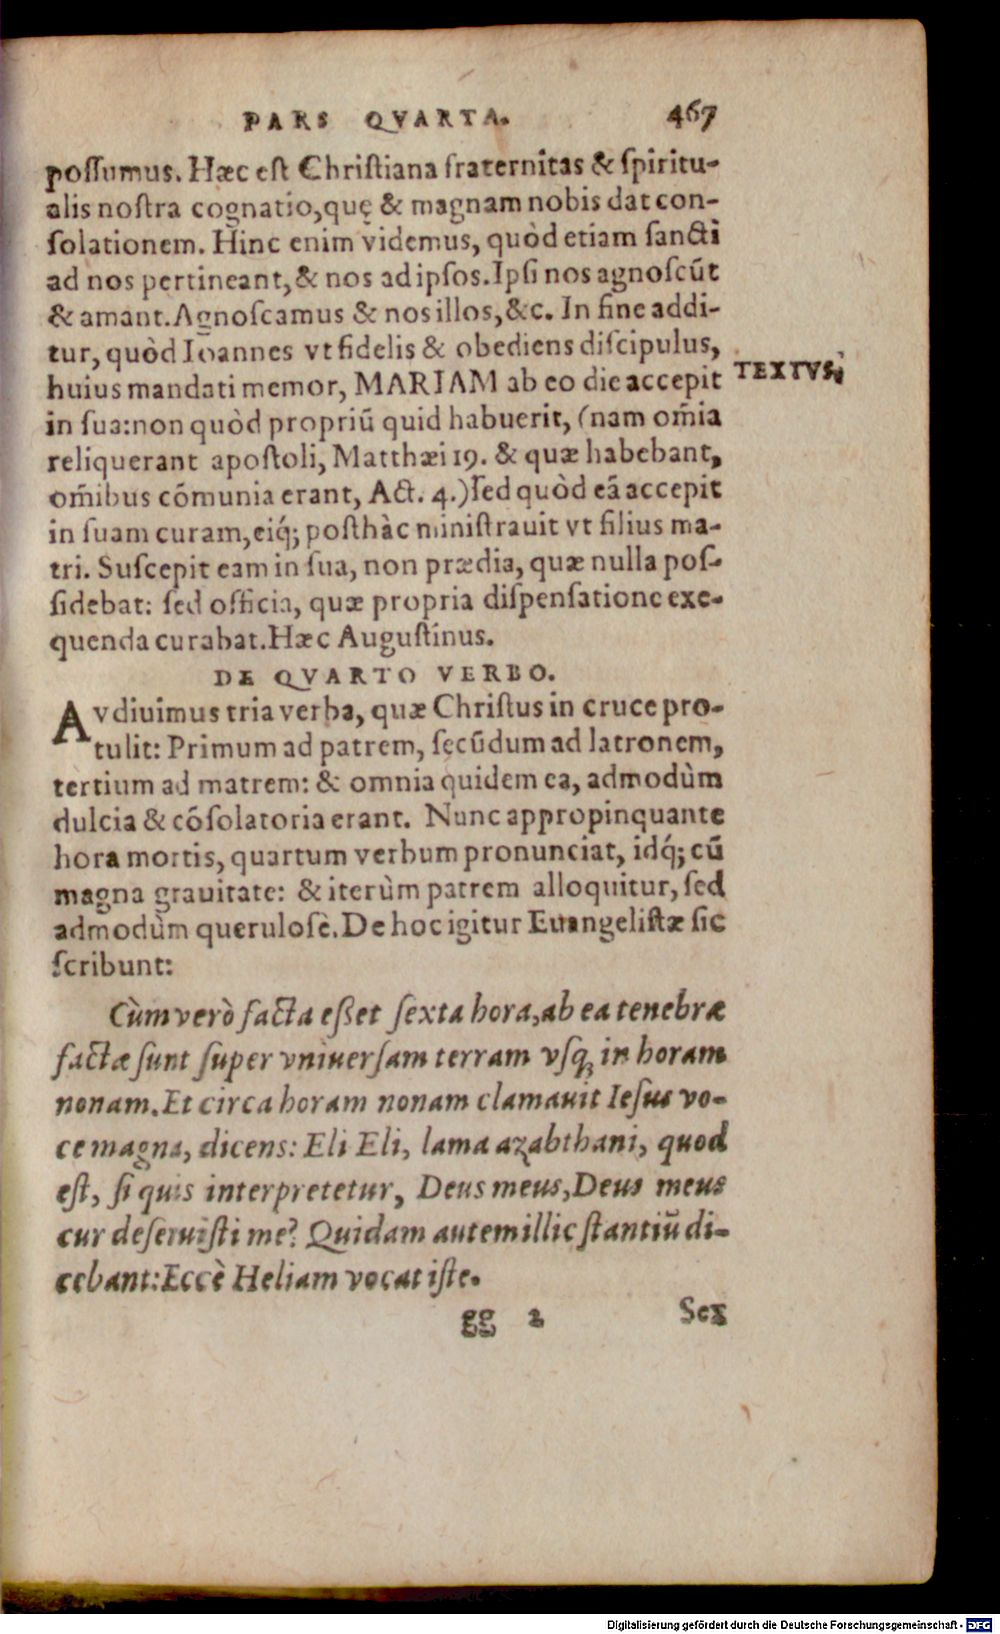 PARS QVARTA. 467
poſſumus. Hæc eſt Chriſtiana fraternitas & ſpiritu-
alis noſtra cognatio, quę & magnam nobis dat con-
ſolationem. Hinc enim videmus, quòd etiam ſancti
ad nos pertineant, & nos ad ipſos. Ipſi nos agnoſcūt
& amant. Agnoſcamus & nos illos, &c. In fine addi-
tur, quòd Ioannes vt fidelis & obediens diſcipulus,
huius mandati memor, MARIAM ab eo die accepit TEXTVS.
in ſua: non quòd propriũ quid habuerit, (nam om̃ia
reliquerant apoſtoli, Matthæi 19. & quæ habebant,
om̃ibus cõmunia erant, Act. 4.) ſed quòd eã accepit
in ſuam curam, eiq́; poſthàc miniſtrauit vt filius ma-
tri. Suſcepit eam in ſua, non prædia, quæ nulla poſ-
ſidebat: ſed officia, quæ propria diſpenſatione exe-
quenda curabat. Hæc Auguſtinus.
DE QVARTO VERBO.
Avdiuimus tria verba, quæ Chriſtus in cruce pro-
tulit: Primum ad patrem, ſecũdum ad latronem,
tertium ad matrem: & omnia quidem ea, admodùm
dulcia & cõſolatoria erant. Nunc appropinquante
hora mortis, quartum verbum pronunciat, idq́; cũ
magna grauitate: & iterùm patrem alloquitur, ſed
admodùm queruloſè. De hoc igitur Euangeliſtæ ſic
ſcribunt:
Cùm verò facta eſſet ſexta hora, ab ea tenebræ
factæ ſunt ſuper vniuerſam terram vſq; in horam
nonam. Et circa horam nonam clamauit Ieſus vo-
ce magna, dicens: Eli Eli, lama azabthani, quod
eſt, ſi quis interpretetur, Deus meus, Deus meus
cur deſeruiſti me? Quidam autem illic ſtantiũ di-
cebant: Eccè Heliam vocat iſte.
gg 2 Sex
Digitalisierung gefördert durch die Deutsche Forschungsgemeinschaft - DFG